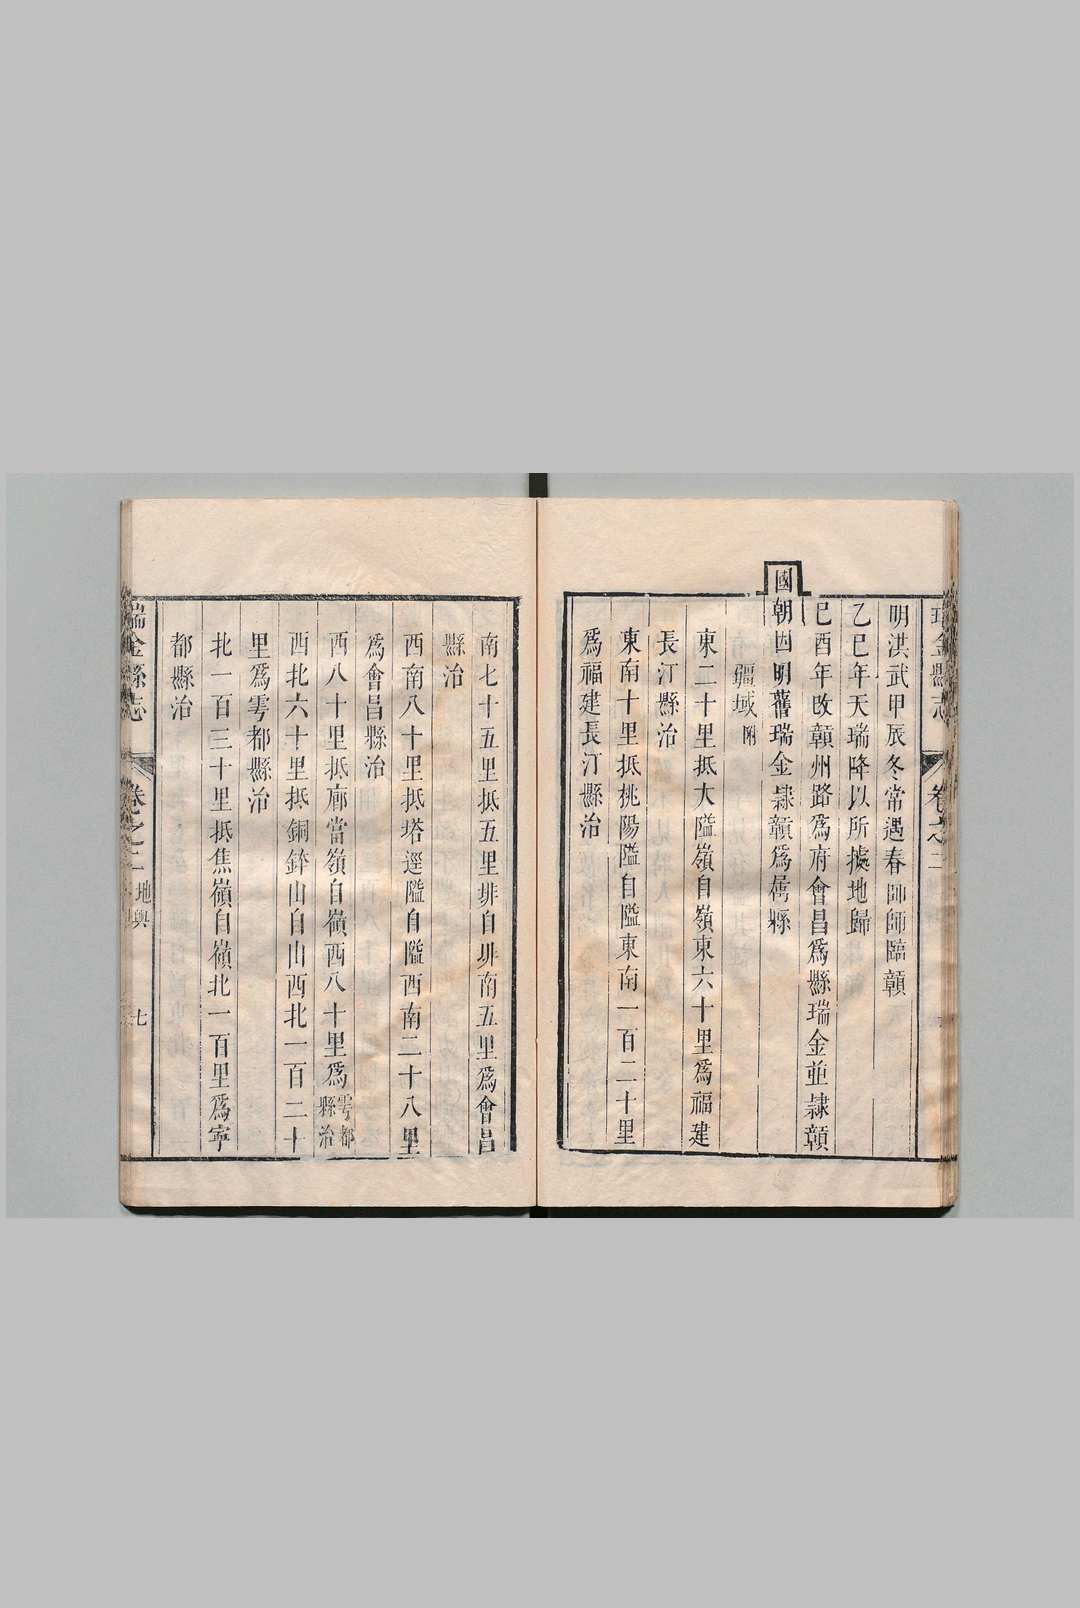 明洪武甲辰冬常遇春師師臨贛
乙巳年天瑞降以所據地歸
己酉年改贛州路爲府會昌爲縣瑞金並隸贛
國朝因明舊瑞金隸贛爲屬縣
疆域附
東二十里抵大隘嶺自嶺東六十里爲福建
長汀縣治
東南十里抵桃陽隘自隘東南一百二十里
爲福建長汀縣治
南七十五里抵五里排自排南五里爲會昌
縣治
西南八十里抵塔逕隘自隘西南二十八里
爲會昌縣治
西八十里抵廍當嶺自嶺西八十里爲雩都縣治
西北六十里抵銅鉢山自山西北一百二十
里爲雩都縣治
北一百三十里抵焦嶺自嶺北一百里爲寧
都縣治
瑞金縣志
卷之二
地輿
七